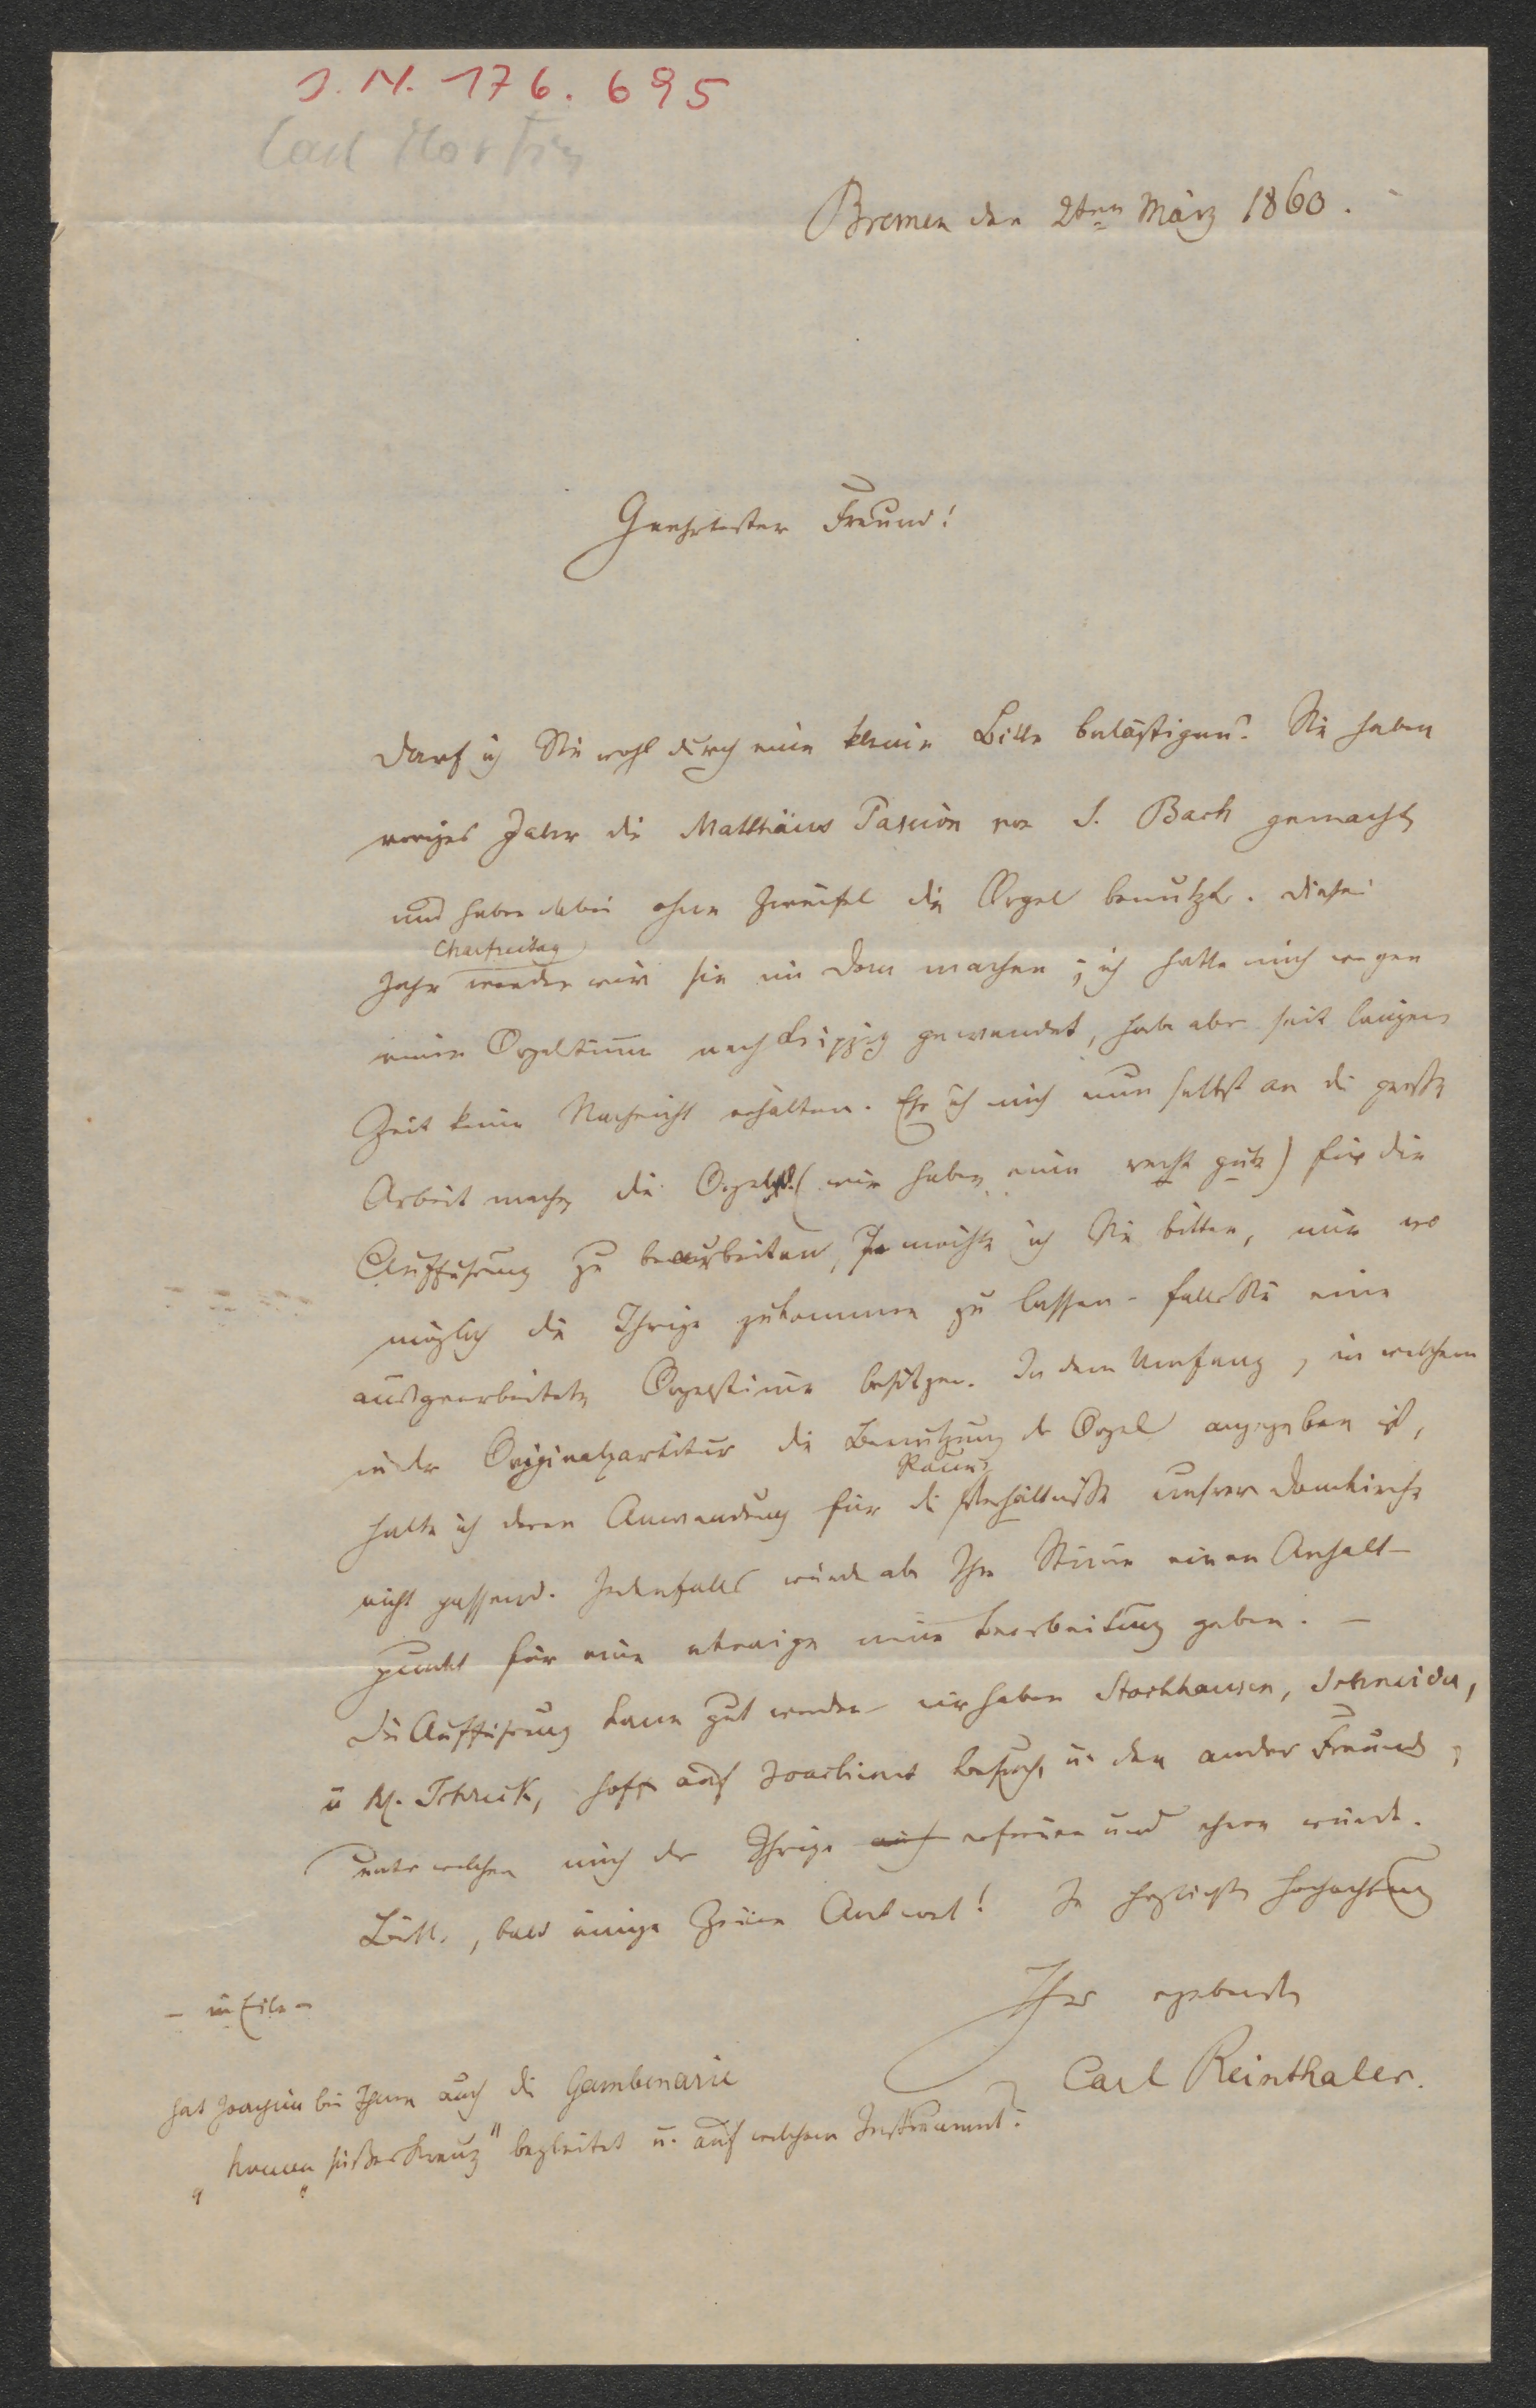 J. N. 176.695
Carl Martin
Bremen den 2ten März 1860.
Geehrtester Freund!
Darf ich Sie wohl durch eine kleine Bitte belästigen? Sie haben
voriges Jahr die Matthäus Passion von S. Bach gemacht
und haben dabei ohne Zweifel die Orgel benutzt. Dieses
Charfreitag
Jahr werden wir sie im Dom machen; ich hatte mich wegen
einer Orgelstimme nach Leipzig gewendet, habe aber seit langer
Zeit keine Nachricht erhalten. Ehe ich mich nun selbst an die große
Arbeit mache, die Orgel (wir haben eine recht gute) für die
Aufführung zu bearbeiten, so möchte ich Sie bitten, mir wo
möglich die Ihrige zukommen zu lassen - falls Sie eine
ausgearbeitete Orgelstimme besitzen. In dem Umfang, in welchem
in der Originalpartitur die Benutzung der Orgel angegeben ist,
Raum
halte ich deren Anwendung für die Verhältnisse unsrer Domkirche
nicht passend. Jedenfalls würde aber Ihre Stimme einen Anhalt-
punkt für eine etwaige neue Bearbeitung geben. -
Die Aufführung kann gut werden - wir haben Stockhausen, Schneider,
u Schreck, hoffe auf Joachims Besuch, u. den andrer Freunde,
unter welchen mich der Ihrige auch erfreuen und ehren würde.
Bitte, bald einige Zeilen Antwort! In herzlichster Hochachtung
Ihr ergebenster
- in Eile -
Carl Reinthaler.
Hat Joachim bei Ihnen auch die Gambenarie
„Komm süßes Kreuz" begleitet u. auf welchem Instrument?